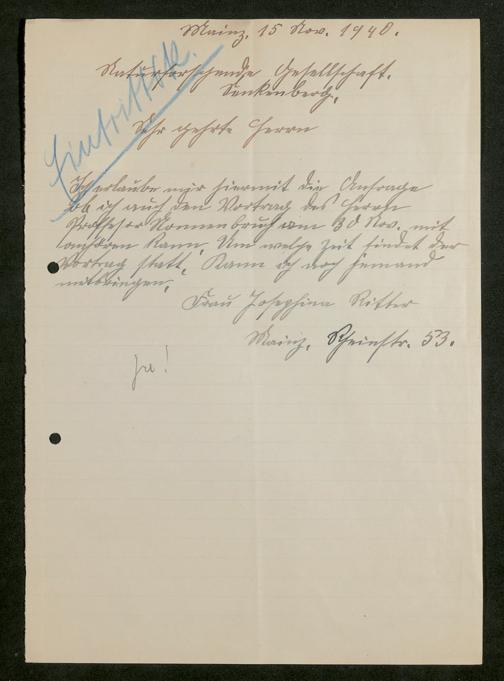 Mainz, 15 Nov. 1940.
Naturforschende Gesellschaft.
Senkenberg.
Eintrittsk.
Sehr geehrte Herrn
Ich erlaube mir hiermit die Anfrage
ob ich auch den Vortrag des Herrn
Professor am 30 Nov. mit
anhören kann. Um welche Zeit findet der
Vortrag statt. Kann ich noch jemand
mitbringen.
Frau Josephina Ritter
Mainz, Rheinstr. 53.
ja!